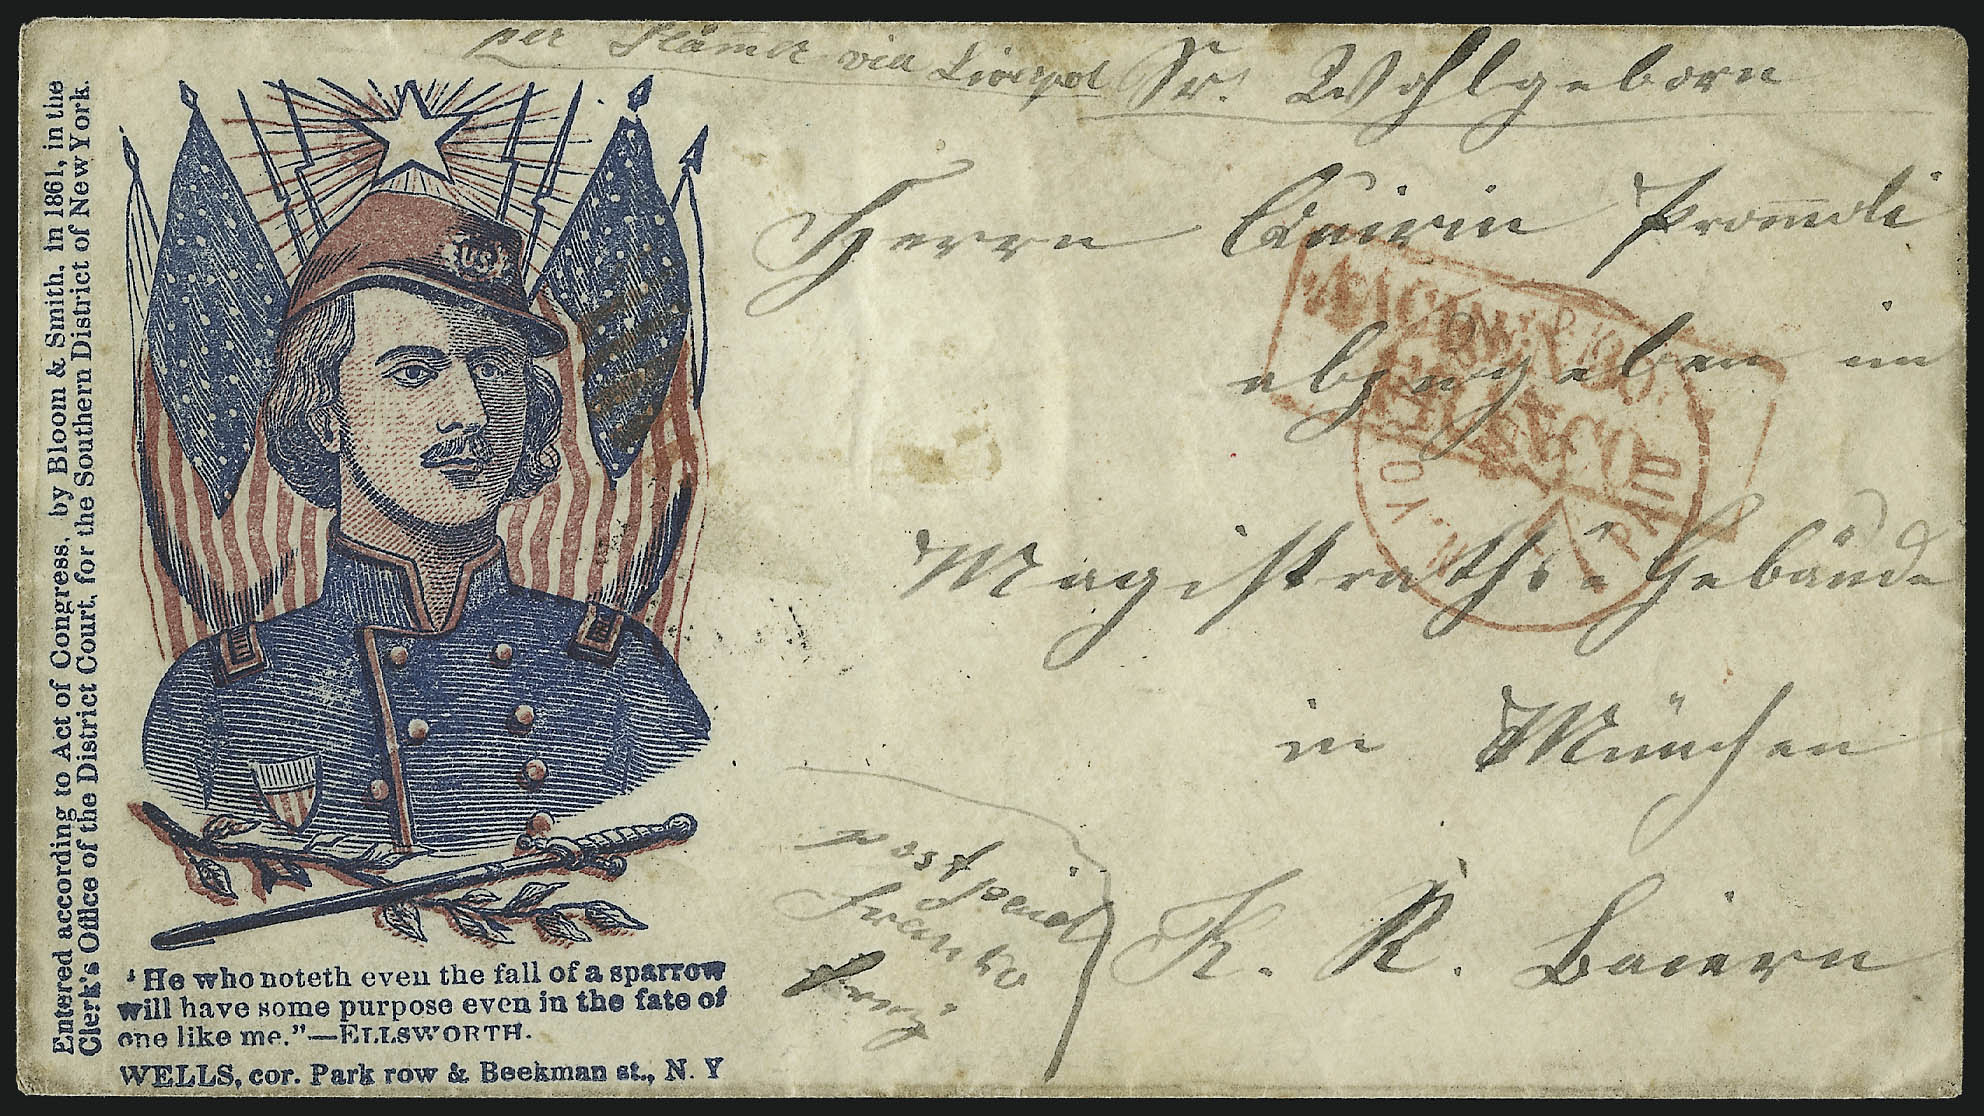 Entered according to Act of Congress, by Bloom & Smith, in 1861, in the
Clerk's Office of the District Court, for the Southern District of New York.
per Stamer via Liverpol
Sr. Wohlgeborn
Herrn Quirin Prom̅oli
abzugeben im
Magistraths-Gebäude
in München
K. K. Baiern
postpaid
Franko
US
AACHEN
FRANCO
N. YORK
PAID
"He who noteth even the fall of a sparrow
will have some purpose even in the fate of
one like me."—ELLSWORTH.
WELLS, cor. Park row & Beekman st., N. Y